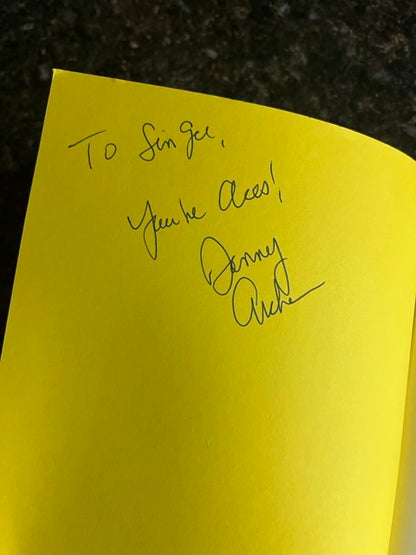 To Sin Gee,
You're Aces!,
Danny
Archer